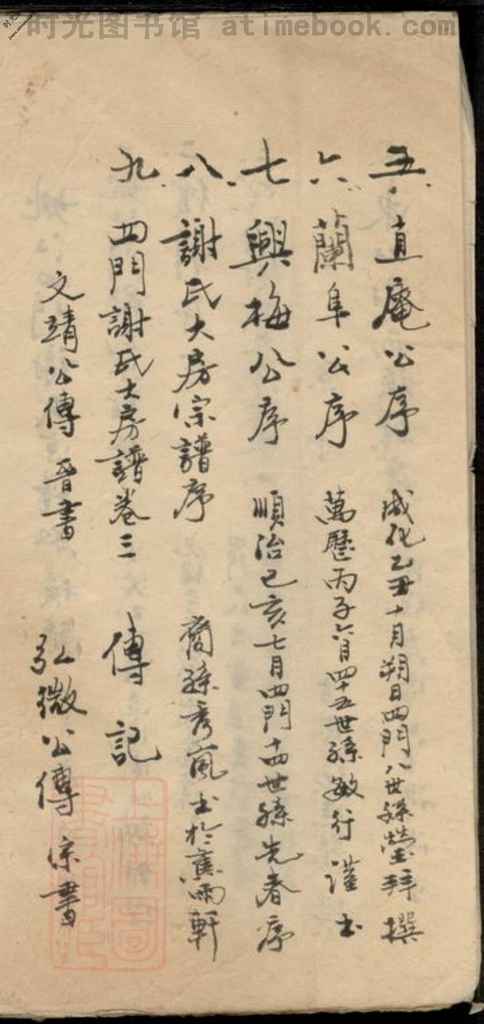 时光图书馆 atimebook.com
五、直庵公序 成化乙丑十月朔日四門八世孫瑩拜撰
六、蘭阜公序 萬歷丙子六月四十五世孫敏行謹書
七、興梅公序 順治己亥七月四門十四世孫先春序
八、謝氏大房宗譜序 裔孫秀嵐書於舊雨軒
九、四門謝氏大房譜卷三 傳記
文靖公傳 晉書 弘微公傳 宋書